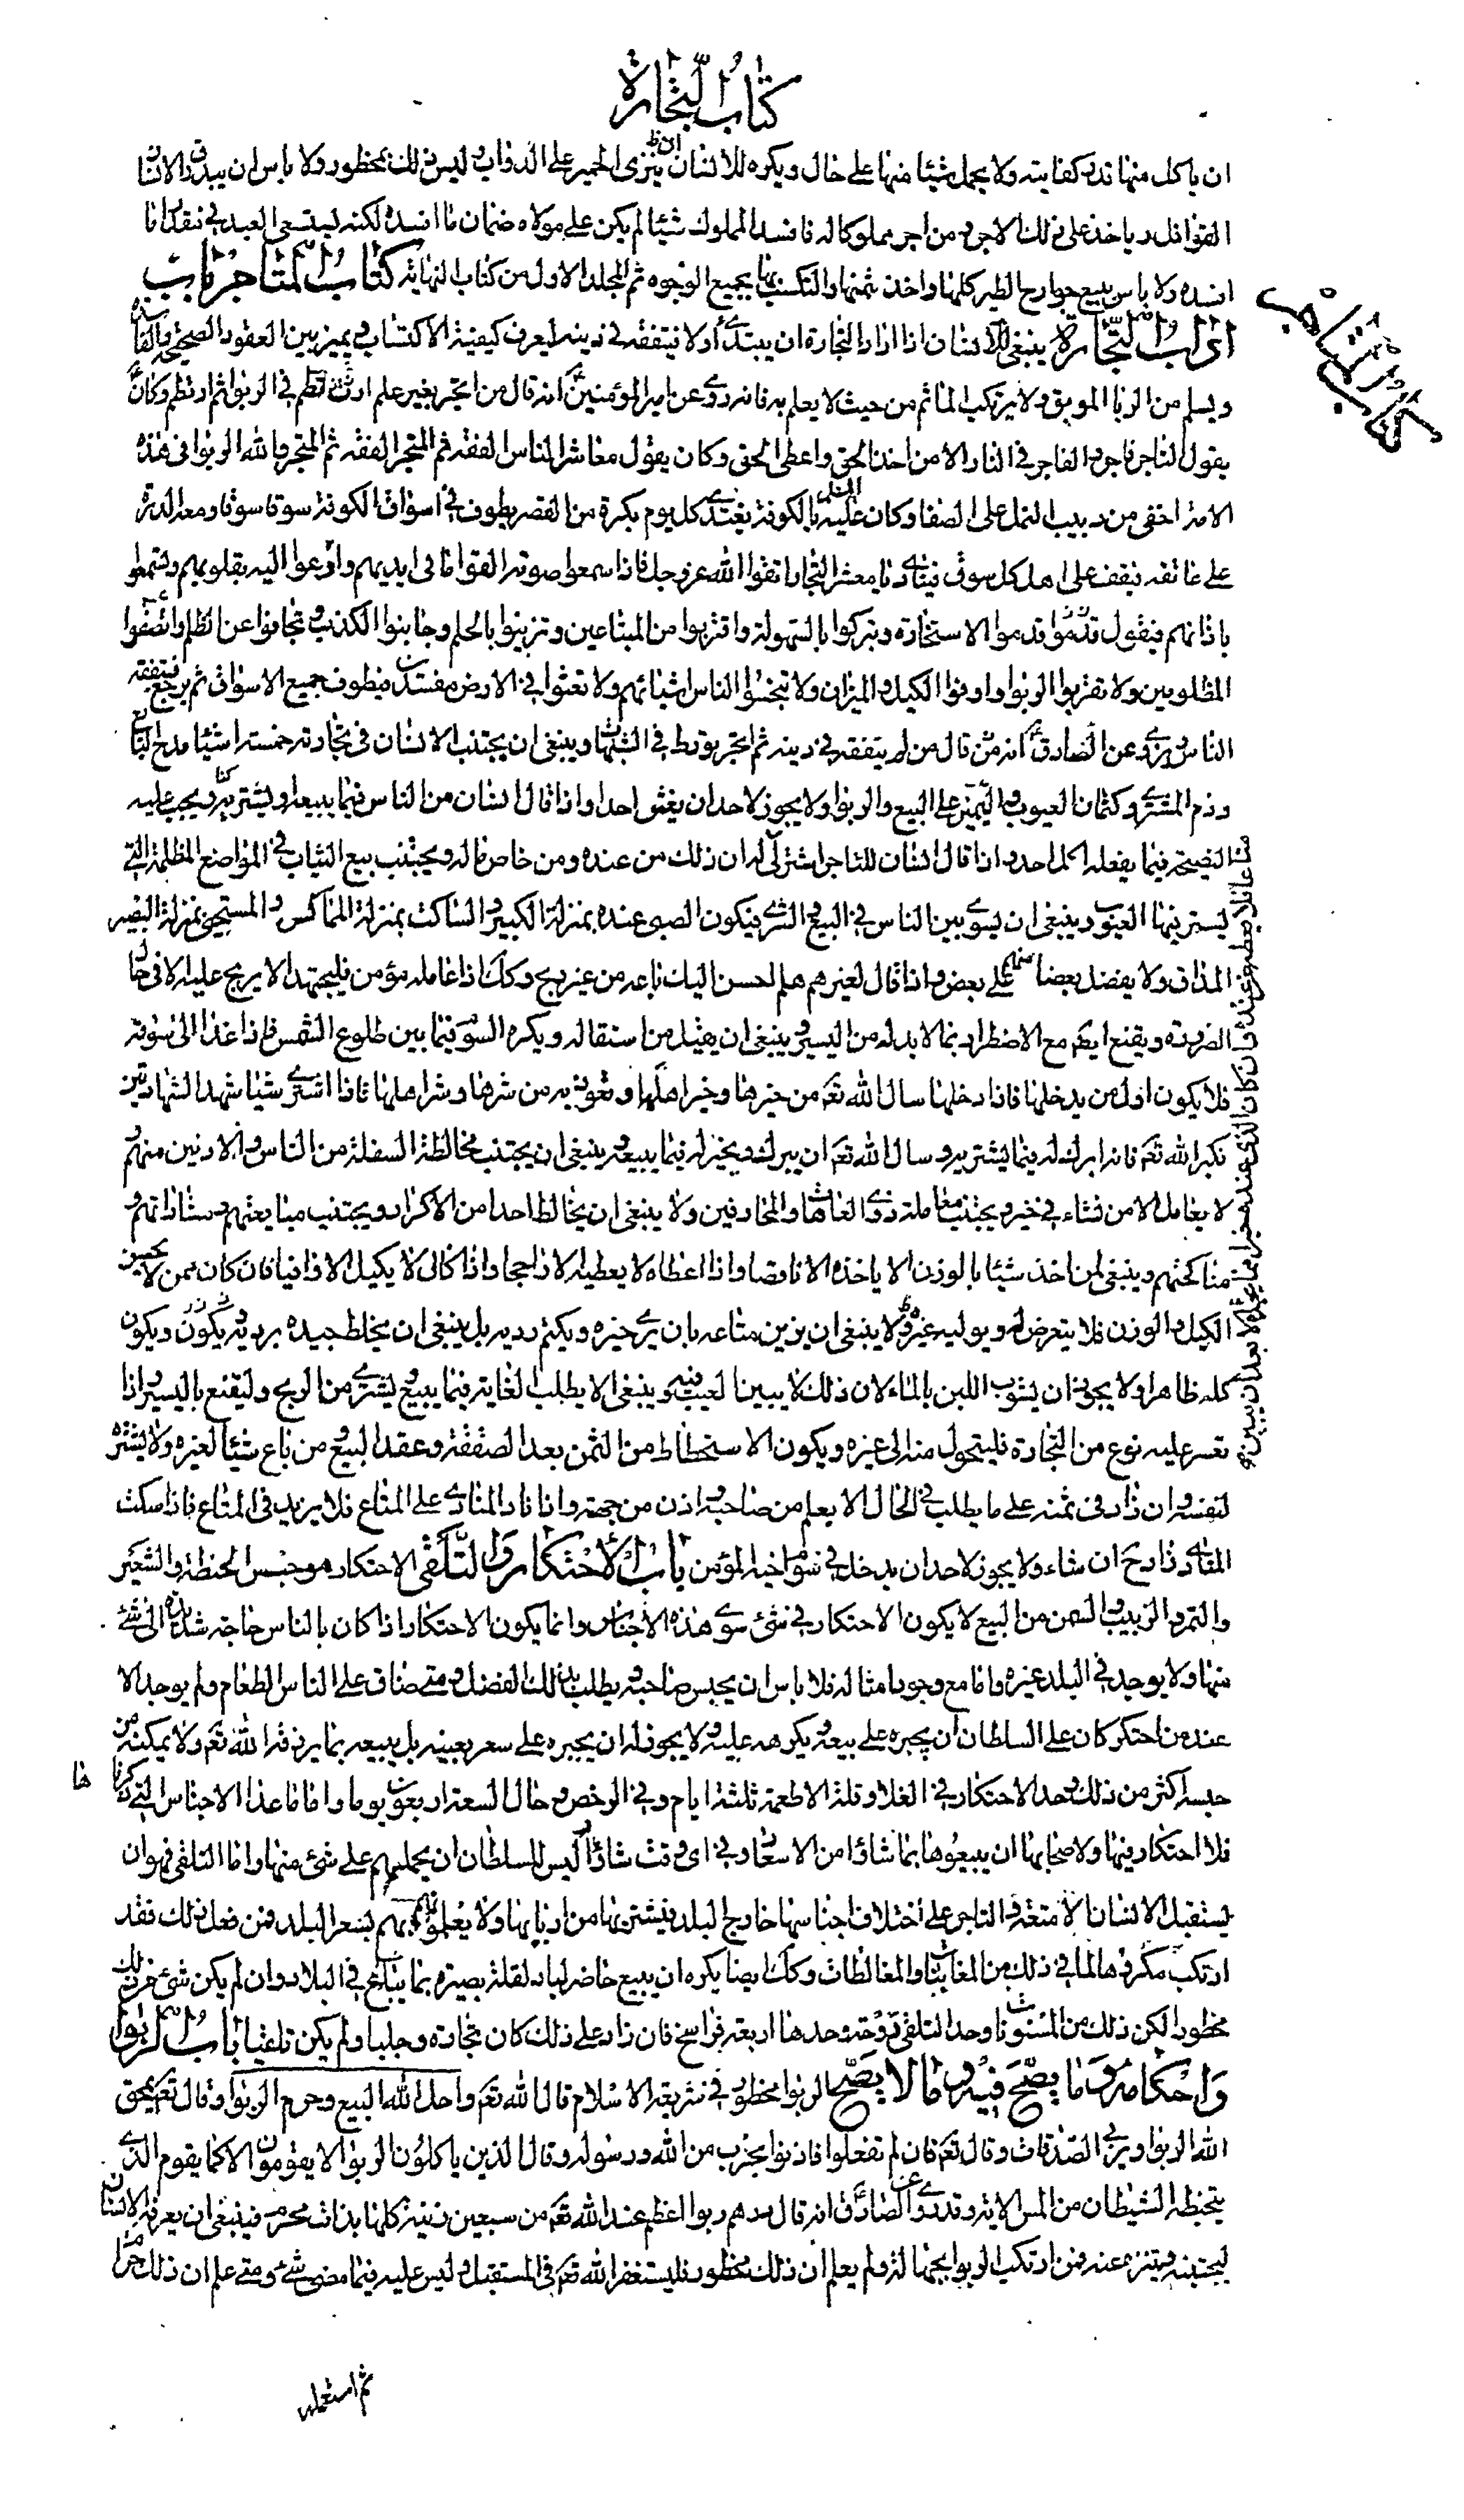 كتاب التجارة
ان ياكل منها قدر كفايته ولا يحمل شيئا منها على حال ويكره للانسان ان ينزى الحمير على الدواب وليس ذلك بمحظور ولا باس ان يبدرق الانسان
القوافل وياخذ على ذلك الاجر ومن اجر مملوكا له فافسد المملوك شيئا لم يكن على مولاه ضمان ما افسده لكنه يستسعى العبد في مقدار ما
افسده ولا باس ببيع جوارح الطير كلها واخذ ثمنها والتكسب بها بجميع الوجوه تم المجلد الاول من كتاب النهاية كتاب المتاجر باب
اداب التجارة ينبغي للانسان اذا اراد التجارة ان يبتدئ اولا فيتفقه في دينه ليعرف كيفية الاكتساب ويميز بين العقود الصحيحة والفاسدة
ويسلم من الربا الموبق ولا يرتكب الماثم من حيث لا يعلم به فانه روي عن امير المؤمنين ع انه قال من اتجر بغير علم ارتطم في الربوا ثم ارتطم وكان ع
يقول التاجر فاجر والفاجر في النار الا من اخذ الحق واعطى الحق وكان يقول معاشر الناس الفقه ثم المتجر الفقه ثم المتجر والله للربوا في هذه
الامة اخفى من دبيب النمل على الصفا وكان عليه السلم بالكوفة يغتدي كل يوم بكرة من القصر يطوف في اسواق الكوفة سوقا سوقا ومعه الدرة
على عاتقه فيقف على اهل كل سوق فينادي يا معشر التجار اتقوا الله عز وجل فاذا سمعوا صوته القوا ما في ايديهم وارعوا اليه بقلوبهم وتسمعوا
باذانهم فيقول قدموا الاستخارة وتبركوا بالسهولة واقتربوا من المبتاعين وتزينوا بالحلم وجانبوا الكذب وتجافوا عن الظلم وانصفوا
المظلومين ولا تقربوا الربوا واوفوا الكيل والميزان ولا تبخسوا الناس اشيائهم ولا تعثوا في الارض مفسدين فيطوف جميع الاسواق ثم يرجع فيقعد
للناس وروي عن الصادق ع انه قال من لم يتفقه في دينه ثم اتجر تورط في الشبهات وينبغي ان يجتنب الانسان في تجارته خمسة اشيا مدح البائع
وذم المشتري وكتمان العيوب واليمين على البيع والربوا ولا يجوز لاحد ان يغش احدا واذا قال انسان من الناس فيما يبيعه او يشتريه ويجب عليه
النصيحة فيما يفعله لكل احد واذا قال انسان للتاجر اشتر لي لم يجز له ان ذلك من عنده ومن خاص ماله ويجتنب بيع الثياب في المواضع المظلمة التي
يستتر فيها العيوب وينبغي ان يسوي بين الناس في البيع والشرى فيكون الصبي عنده بمنزلة الكبير والساكت بمنزلة المماكس والمستحيي بمنزلة البصير
المداق ولا يفضل بعضا منهم على بعض واذا قال لغيره هلم احسن اليك باعه من غير ربح وكك اذا عامله مؤمن فليجتهد الا يربح عليه الا في حال
الضرورة ويقنع ايضا مع الاضطرار بما لا بد له من اليسير وينبغي ان يقيل من استقاله ويكره السوم فيما بين طلوع الفجر الى طلوع الشمس فاذا غدا الى سوقه
فلا يكون اول من يدخلها فاذا دخلها سال الله تع من خيرها وخير اهلها وتعوذ به من شرها وشر اهلها فاذا اشترى شيئا شهد الشهادتين
وكبر الله تع فانه ابرك له فيما يشتريه وسال الله تع ان يبارك له ويخير له فيما يبيعه وينبغي ان يجتنب مخالطة السفلة من الناس والادنين منهم و
لا يعامل الا من نشاء في خير ويجتنب معاملة ذوى العاهات والمحارفين ولا ينبغي ان يخالط احدا من الاكراد ويجتنب مبايعتهم ومشاراتهم و
مناكحتهم وينبغي لمن اخذ شيئا بالوزن الا ياخذه الا ناقصا واذا اعطاه لا يعطيه الا راجحا واذا كال لا يكيل الا وافيا فان كان ممن لا يحسن
الكيل والوزن فلا يتعرض له ويوليه غيره ولا ينبغي ان يزين متاعه بان يرى خيره ويكتم رديه بل ينبغي ان يخلط جيده برديه ويكون
كله ظاهرا ولا يجوز ان يشوب اللبن بالماء لان ذلك لا يبين العيب فيه وينبغي الا يطلب الغاية فيما يبيع ويشتري من الربح وليقنع باليسير واذا
تعسر عليه نوع من التجارة فليتحول منه الى غيره ويكره الاستحطاط من الثمن بعد الصفقة وعقد البيع ومن باع شيئا لغيره ولا يشتره
لنفسه وان زاد في ثمنه على ما يطلب في الحال الا بعلم من صاحبه واذن من جهته واذا نادى المنادي على المتاع فلا يزيد في المتاع فاذا سكت
المنادى زاد ح ان شاء ولا يجوز لاحد ان يدخل في سوم اخيه المؤمن باب الاحتكار والتلقى الاحتكار هو حبس الحنطة والشعير
والتمر والزبيب والسمن من البيع لا يكون الاحتكار في شئ سوى هذه الاجناس وانما يكون الاحتكار اذا كان بالناس حاجة شديدة الى شئ
منها ولا يوجد في البلد غيره واما مع وجود امثاله فلا باس ان يحبس صاحبه ويطلب بذلك الفضل ومتى ضاق على الناس الطعام ولم يوجد الا
عند من احتكر كان على السلطان ان يجبره على بيعه ويكرهه عليه ولا يجوز له ان يجبره على سعر بعينه بل يبيعه بما يرزقه الله تع ولا يمكنه من
حبسه اكثر من ذلك وحد الاحتكار في الغلا وقلة الاطعمة ثلثة ايام وفي الرخص وحال السعة اربعون يوما واما ما عدا الاجناس التي ذكرناها
فلا احتكار فيها ولاصحابها ان يبيعوها بما شاؤا من الاسعار وفي اى وقت شاؤا وليس للسلطان ان يحملهم على شئ منها واما التلقى فهو ان
يستقبل الانسان الامتعة والمتاجر على اختلاف اجناسها خارج البلد فيشتريها من اربابها ولا يعلمون هم بسعر البلد فمن فعل ذلك فقد
ارتكب مكروها لما في ذلك من المغابنات والمغالطات وكك ايضا يكره ان يبيع حاضر لباد لقلة بصيرته بما يباع في البلاد وان لم يكن شئ من ذلك
محظورا لكن ذلك من المسنونات وحد التلقى روحة وحدها اربعة فراسخ فان زاد على ذلك كان تجارة وجلبا ولم يكن تلقيا باب الربوا
واحكامه وما يصح فيه وما لا يصح الربوا محظور في شريعة الاسلام قال الله تع واحل الله البيع وحرم الربوا وقال تع يمحق
الله الربوا ويربي الصدقات وقال تع فان لم تفعلوا فاذنوا بحرب من الله ورسوله وقال الذين ياكلون الربوا لا يقومون الا كما يقوم الذي
يتخبطه الشيطان من المس الاية وقد روي عن الصادق ع انه قال درهم ربوا اعظم عند الله تع من سبعين زنية كلها بذات محرم فينبغي ان يعرفه الانسان
ليجتنبه ويتنزه عنه فمن ارتكب الربوا بجهالة ولم يعلم ان ذلك محظور فليستغفر الله تع في المستقبل وليس عليه فيما مضى شئ ومتى علم ان ذلك حرام
ثم استعمله
كتاب المتاجر